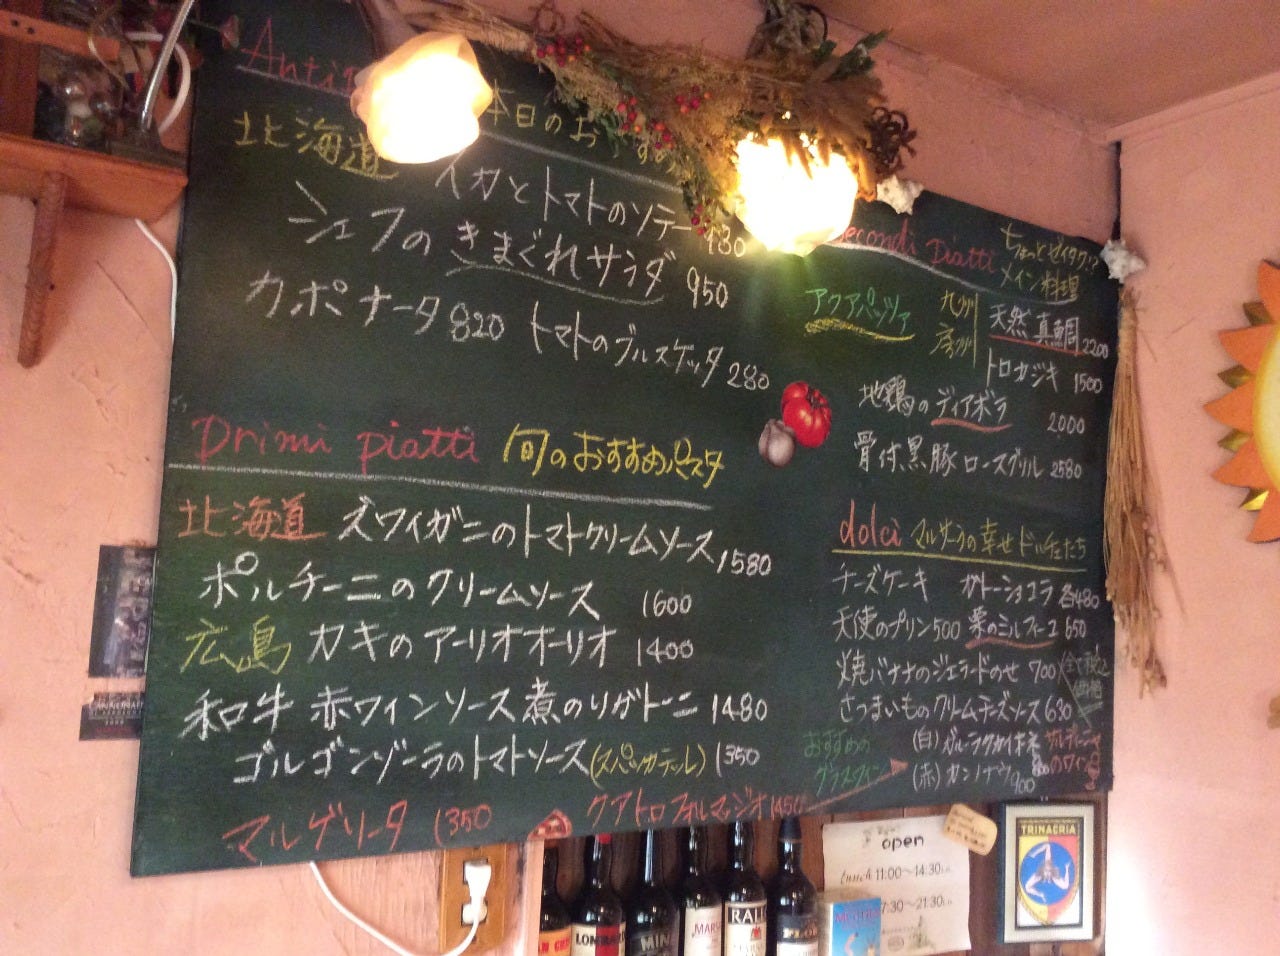 本日のおすすめ
北海道 イカとトマトのソテー
シェフのきまぐれサラダ 950
カポナータ 820 トマトのブルスケッタ 280
Primi piatti 旬のおすすめパスタ
北海道 ズワイガニのトマトクリームソース 1580
ポルチーニのクリームソース 1600
広島 カキのアーリオオーリオ 1400
和牛 赤ワインソース煮のリガトーニ 1480
ゴルゴンゾーラのトマトソース 1350
マルゲリータ 1350 クアトロフォルマッジオ 1450
Secondi Piatti ちょっとゼイタク!?
メイン料理
アクアパッツァ 九州 天然真鯛 2200
トロカジキ 1500
地鶏のディアボラ 2000
骨付黒豚ロースグリル 2580
dolci マルサーラの幸せドルチェたち
チーズケーキ ガトーショコラ 各480
天使のプリン 500 栗のミルフィーユ 650
焼バナナのジェラードのせ 700
さつまいものクリームチーズソース 630
全て税込価格
おすすめの
グラスワイン
(白)
(赤) カンノナウ 900
のワイン
open
11:00~14:30
7:30~21:30
TRINACRIA
LOMBARDO